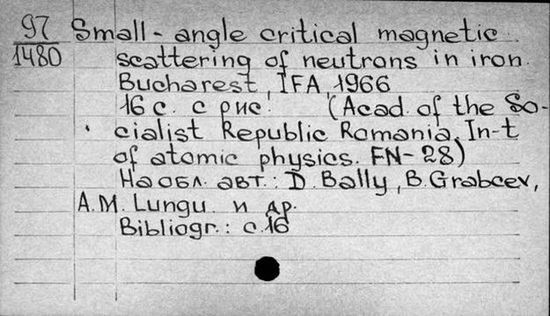 97 Small-angle critical magnetic
1480 scattering of neutrons in iron.
Bucharest, IFA, 1966
16 с. с рис. (Acad. of the So-
cialist Republic Romania. In-t
of atomic physics. FN-28)
На обл. авт.: D. Bally, B. Grabcev,
A.M. Lungu и др.
Bibliogr.: с. 16